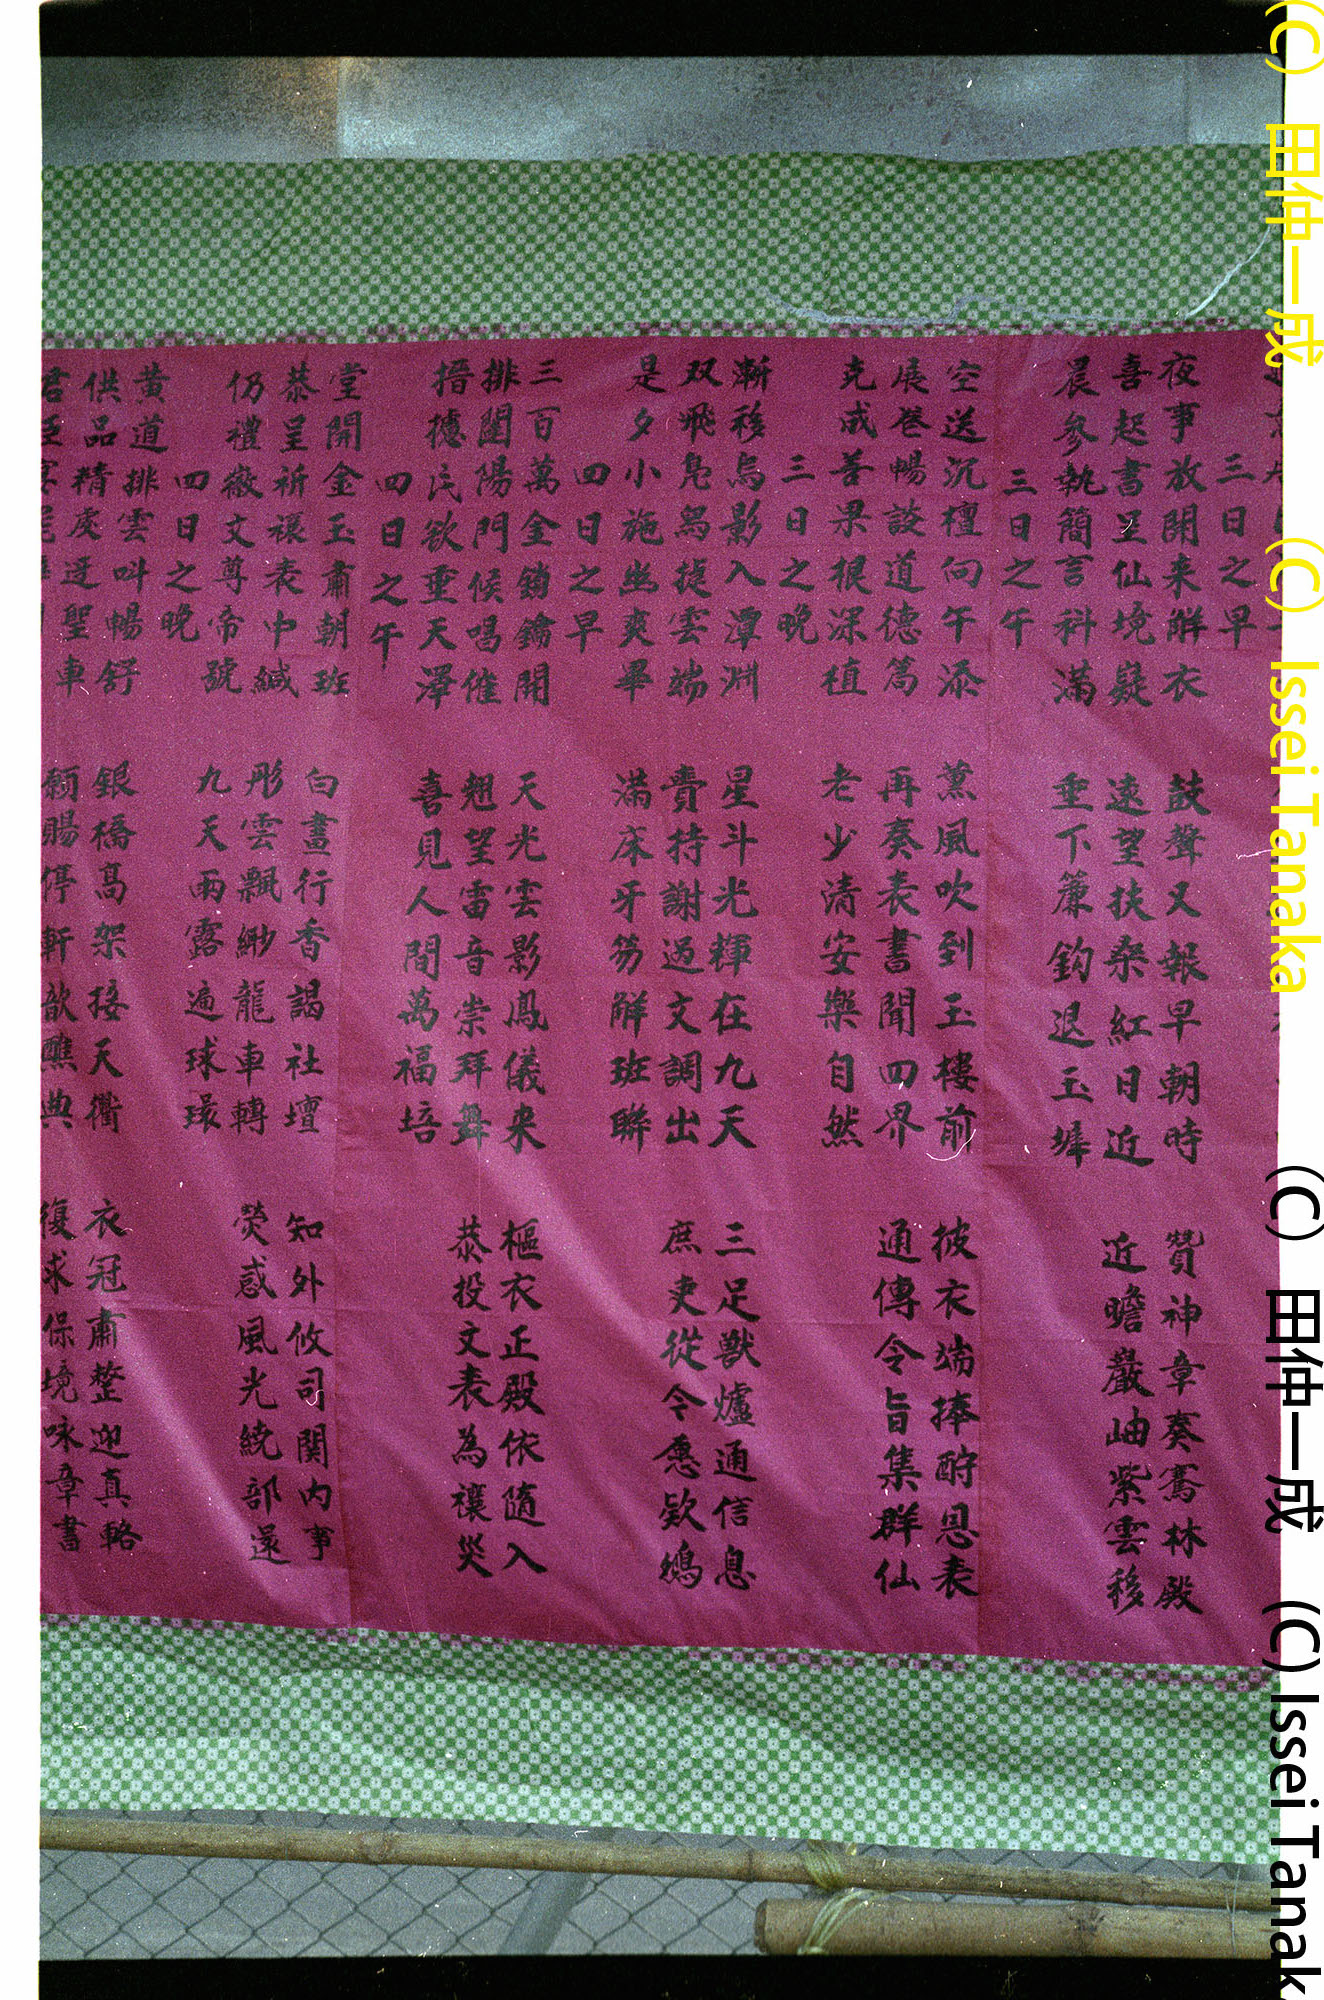 三日之早
夜事放開来解衣 鼓聲又報早朝時 贊神章奏騫林殿
喜起書呈仙境疑 遠望扶桑紅日近 近瞻巖岫紫雲移
晨參執簡言科滿 垂下簾鈎退玉墀
三日之午
空送沉檀向午添 薰風吹到玉樓前 披衣端捧酧恩表
展卷暢談道德篇 再奏表書聞四界 通傳令旨集群仙
克成善果根深植 老少清安樂自然
三日之晚
漸移烏影入潭洲 星斗光輝在九天 三足獸爐通信息
双飛鳧舄捷雲端 賫持謝過文調出 庶吏從令愿欵鴻
是夕小施幽爽畢 滿床牙笏解班聯
四日之早
三百萬金鎖鑰開 天光雲影鳳儀来 樞衣正殿依隨入
排闥陽門候唱催 翹望雷音崇拜舞 恭投文表為禳災
搢攄民欲垂天澤 喜見人間萬福培
四日之午
堂開金玉肅朝班 白晝行香謁社壇 知外攸司関内事
恭呈祈禳表中緘 彤雲飄緲龍車轉 熒惑風光繞部還
仍禮徽文尊帝號 九天雨露遍球環
四日之晚
黄道排雲叫暢舒 銀橋高架接天衢 衣冠肅整迎真輅
供品精虔迓聖車 願賜停軒歆醮典 復求保境咏章書
君臣宴
(C) 田仲一成 (C) Issei Tanaka
(C) 田仲一成 (C) Issei Tanak